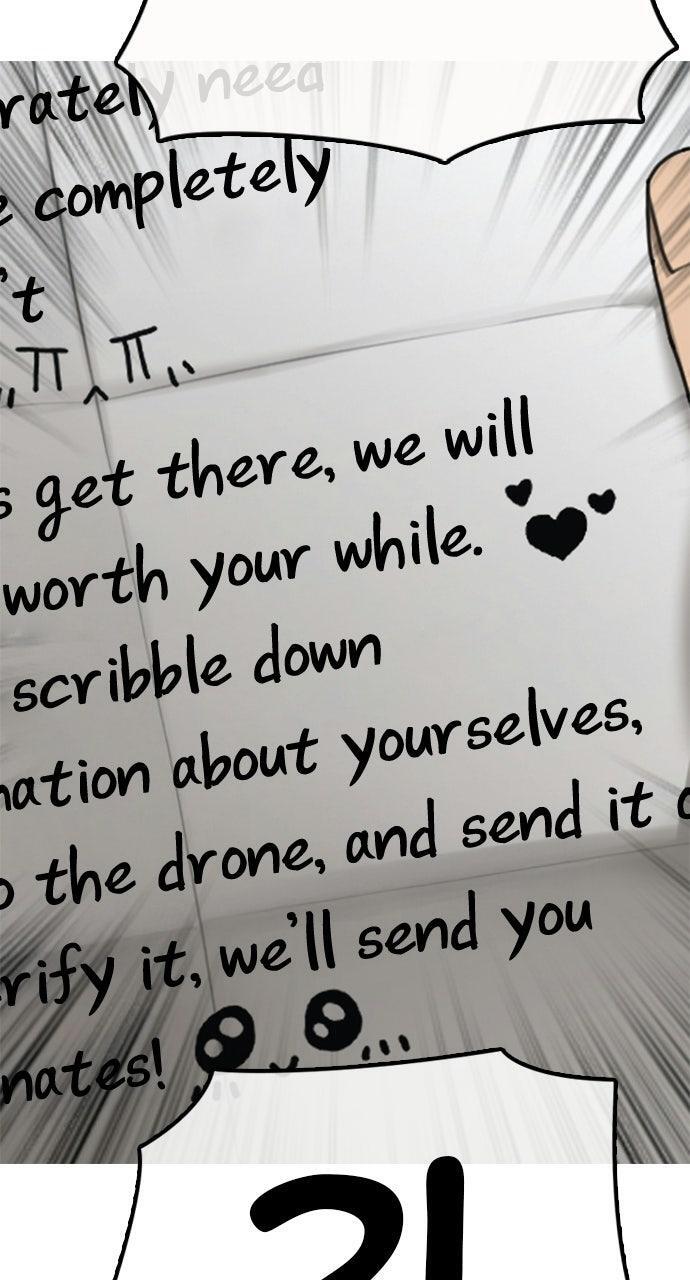 rately need
completely
't
ㅠㅅㅠ
get there, we will
worth your while. ♥♥♥
scribble down
mation about yourselves,
the drone, and send it
rify it, we'll send you
nates!